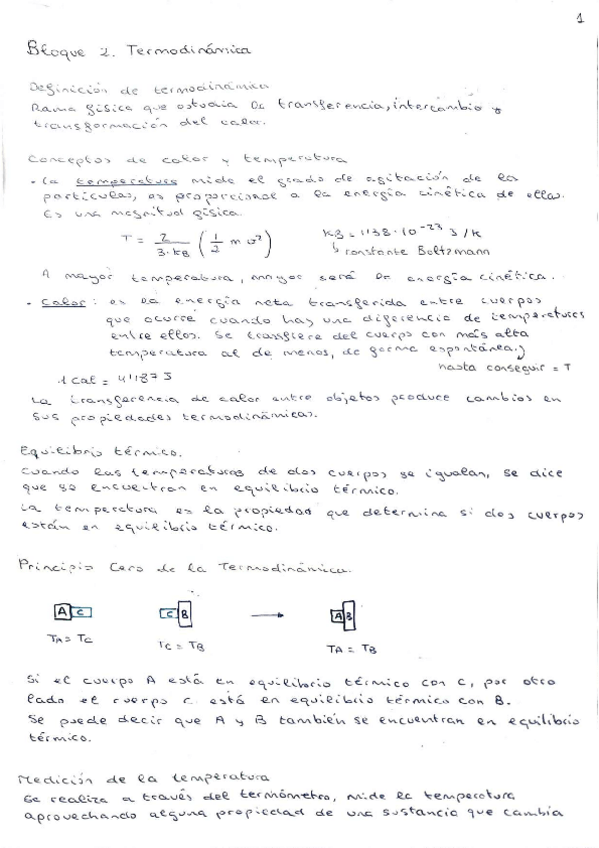 1
Bloque 2. Termodinámica
Definición de termodinámica
Rama física que estudia la transferencia, intercambio y
transformación del calor.
Conceptos de calor y temperatura
- La temperatura mide el grado de agitación de las
partículas, es proporcional a la energía cinética de ellas.
Es una magnitud física.
T = 2 / 3·kB (1/2 m v²) kB = 1'38·10⁻²³ J/K
↳ constante Boltzmann
A mayor temperatura, mayor será la energía cinética.
- Calor: es la energía neta transferida entre cuerpos
que ocurre cuando hay una diferencia de temperaturas
entre ellos. Se transfiere del cuerpo con más alta
temperatura al de menos, de forma espontánea,
hasta conseguir = T
1 cal = 4'187 J
La transferencia de calor entre objetos produce cambios en
sus propiedades termodinámicas.
Equilibrio térmico.
Cuando las temperaturas de dos cuerpos se igualan, se dice
que se encuentran en equilibrio térmico.
La temperatura es la propiedad que determina si dos cuerpos
están en equilibrio térmico.
Principio Cero de la Termodinámica.
A C C B → A B
TA = TC TC = TB TA = TB
Si el cuerpo A está en equilibrio térmico con C, por otro
lado el cuerpo C está en equilibrio térmico con B.
Se puede decir que A y B también se encuentran en equilibrio
térmico.
Medición de la temperatura
Se realiza a través del termómetro, mide la temperatura
aprovechando alguna propiedad de una sustancia que cambia